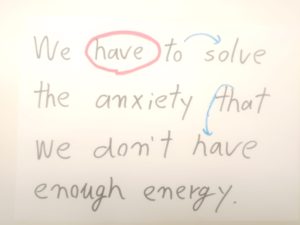 We have to solve
the anxiety that
we don't have
enough energy.